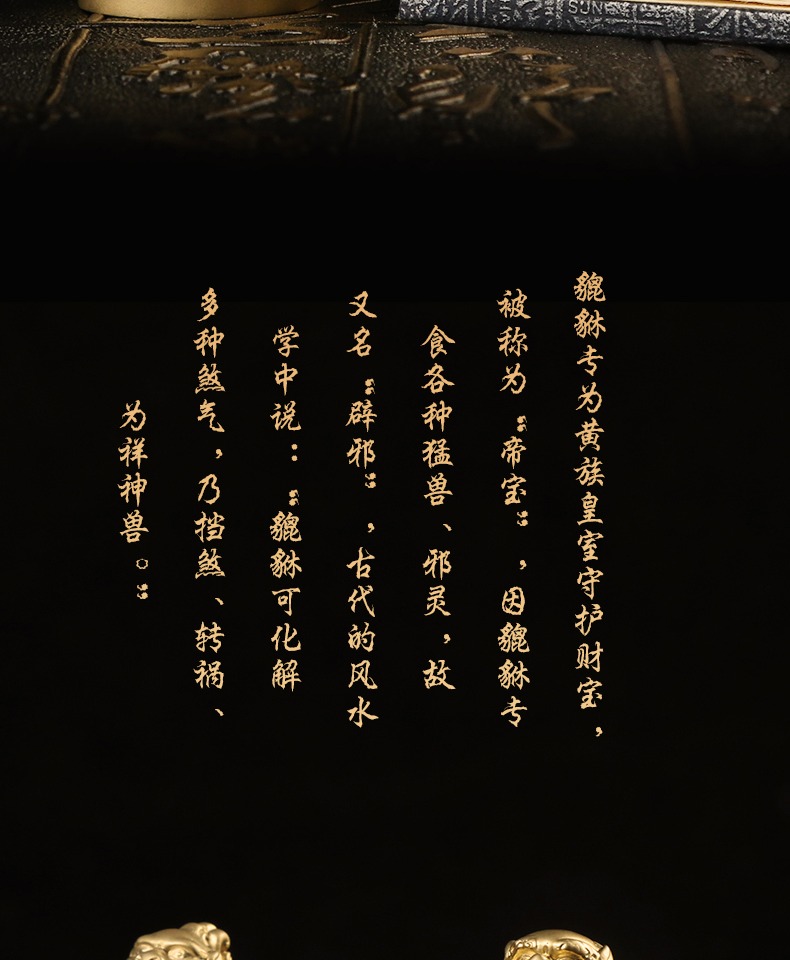 貔貅专为黄族皇室守护财宝，
被称为“帝宝”，因貔貅专
食各种猛兽、邪灵，故
又名“辟邪”，古代的风水
学中说：“貔貅可化解
多种煞气，乃挡煞、转祸、
为祥神兽。”